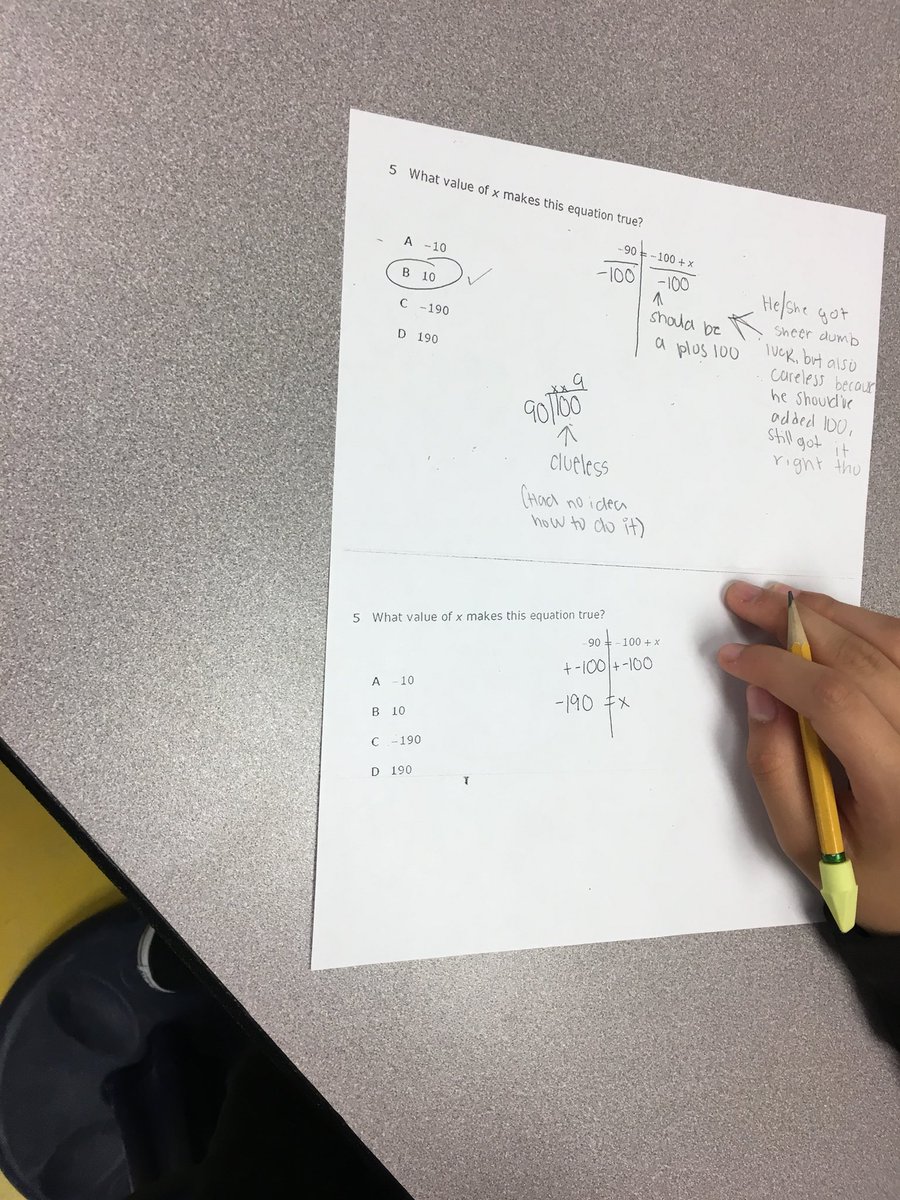 5 What value of x makes this equation true?
A -10
B 10
C -190
D 190
-90 = -100 + x
-100 -100
should be
a plus 100
He/she got
sheer dumb
luck, but also
careless because
he should've
added 100,
still got it
right tho
xx9
90)100
clueless
(Had no idea
how to do it)
5 What value of x makes this equation true?
-90 = -100 + x
+-100 +-100
-190 = x
A -10
B 10
C -190
D 190